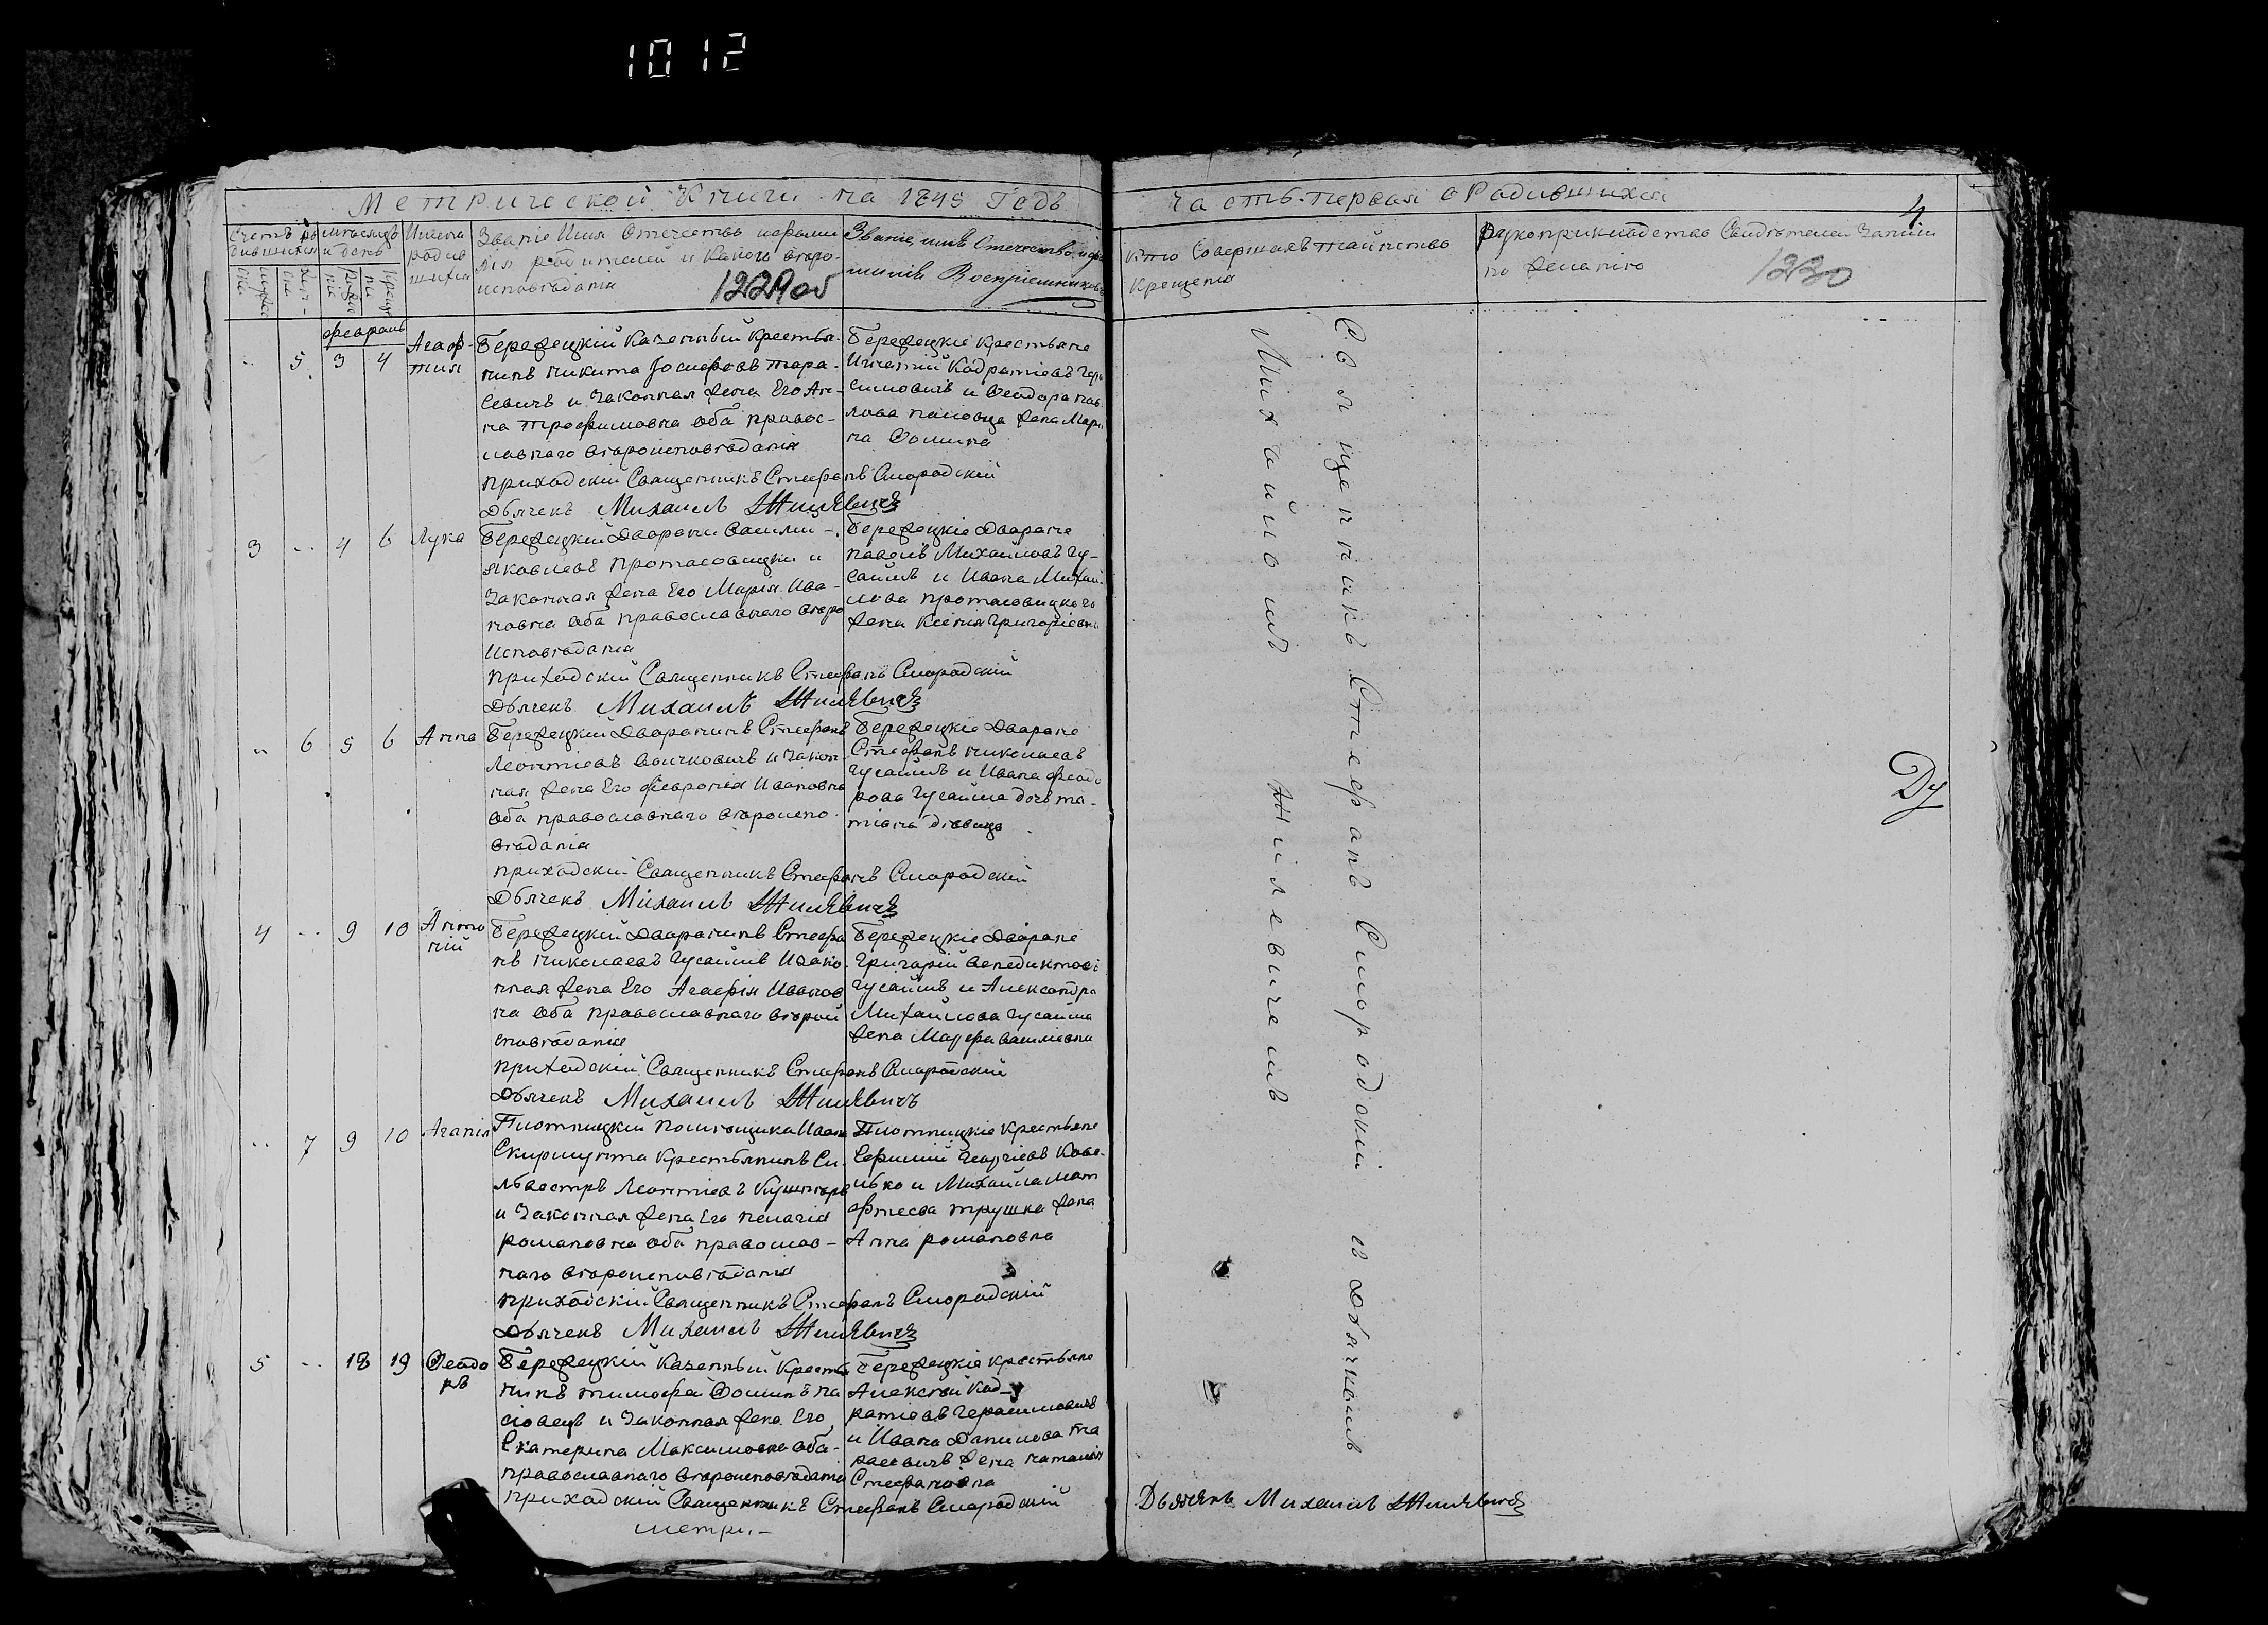 1012
Метрической Книги на 1845 Годъ
Часть первая о Родившихся
4
Счетъ ро
дившихся
Мѣсяцъ
и день
Имена
родив
шихся
Званіе Имя Отечество и фами
лія родителей и какого вѣро-
исповѣданія
1229об
Званіе, имя Отечество, и фа
милія Воспріемниковъ
Кто Совершалъ таинство
Крещенія
Рукоприкладство Свидѣтелей Записи
по желанію
1230
февраль
5 3 4
Агаф-
тія
Бережецкій Казенный Крестья-
нинъ Никита Іосифовъ Тара-
севичъ и Законная жена Его Ан-
на Трофимовна оба правос-
лавнаго вѣроисповѣданія
Бережецкіе Крестьяне
Игнатій Кодратіевъ Гера
симовичъ и Феодора Пав
лова Пасовца жена Мари
на Фомина
Приходскій Священникъ Стефанъ Смородскій
Дьячекъ Михаилъ Жилевичъ
3 4 6 Лука
Бережецкій Дворянин Василий
Яковлевъ Протасовицки и
Законная жена Его Марія Ива-
новна оба православнаго вѣро
Исповѣданія
Бережецкіе Дворяне
Павелъ Михайловъ Гу-
самъ и Ивана Михай-
лова Протасовицкого
жена Ксенія Григоріевна
Приходскій Священникъ Стефанъ Смородскій
Дьячекъ Михаилъ Жилевичъ
6 5 6 Анна
Бережецкій Дворянинъ Стефанъ
Леонтіевъ Воичковичъ и Закон
ная жена Его Февронія Ивановна
оба православнаго вѣроиспо-
вѣданія
Бережецкіе Дворяне
Стефанъ Николаевъ
Гусаимъ и Ивана Феодо
рова Гусаима дочь Та-
тіана дѣвица
Приходски Священникъ Стефанъ Смородскій
Дьячекъ Михаилъ Жилевичъ
4 9 10 Анто
ній
Бережецкій Дворянинъ Стефа
нъ Николаевъ Гусаимъ И Зако-
нная жена Его Агафія Иванов
на оба православнаго вѣрои
споведанія
Бережецкіе Дворяне
Григорій Венедиктовъ
Гусаимъ и Александра
Михайлова Гусаима
жена Марфа Василіевна
Приходскій Священникъ Стефанъ Смородскій
Дьячекъ Михаилъ Жилевичъ
7 9 10 Агапія
Плотницкій Помѣщика Ивана
Скирмунта Крестьянинъ Си-
львестръ Леонтіевъ
и Законная жена Его Пелагія
Романовна оба православ-
наго вѣроисповѣданія
Плотницкіе Крестьяне
Ефимій Георгіевъ Кова-
лько и Михаила Мат
фтеева Трушка жена
Анна Романовна
Приходскій Священникъ Стефанъ Смородскій
Дьячекъ Михаилъ Жилевичъ
5 18 19 Феодо
ръ
Бережецкій Казенный Крестья
нинъ Тимофей Фоминъ Па
совецъ и Законная жена Его
Екатерина Максимовна оба-
православнаго вѣроисповѣданія
Бережецкіе Крестьяне
Алексѣй Код-
ратіевъ Герасимовичъ
и Ивана Данилова Та
расевичъ жена Наталія
Стефановна
Приходскій Священникъ Стефанъ Смородскій
метри.-
Священникъ Стефанъ Смородскій съ Дьячкомъ
Михаиломъ Жилевичемъ
Ду
Дьячекъ Михаилъ Жилевичъ